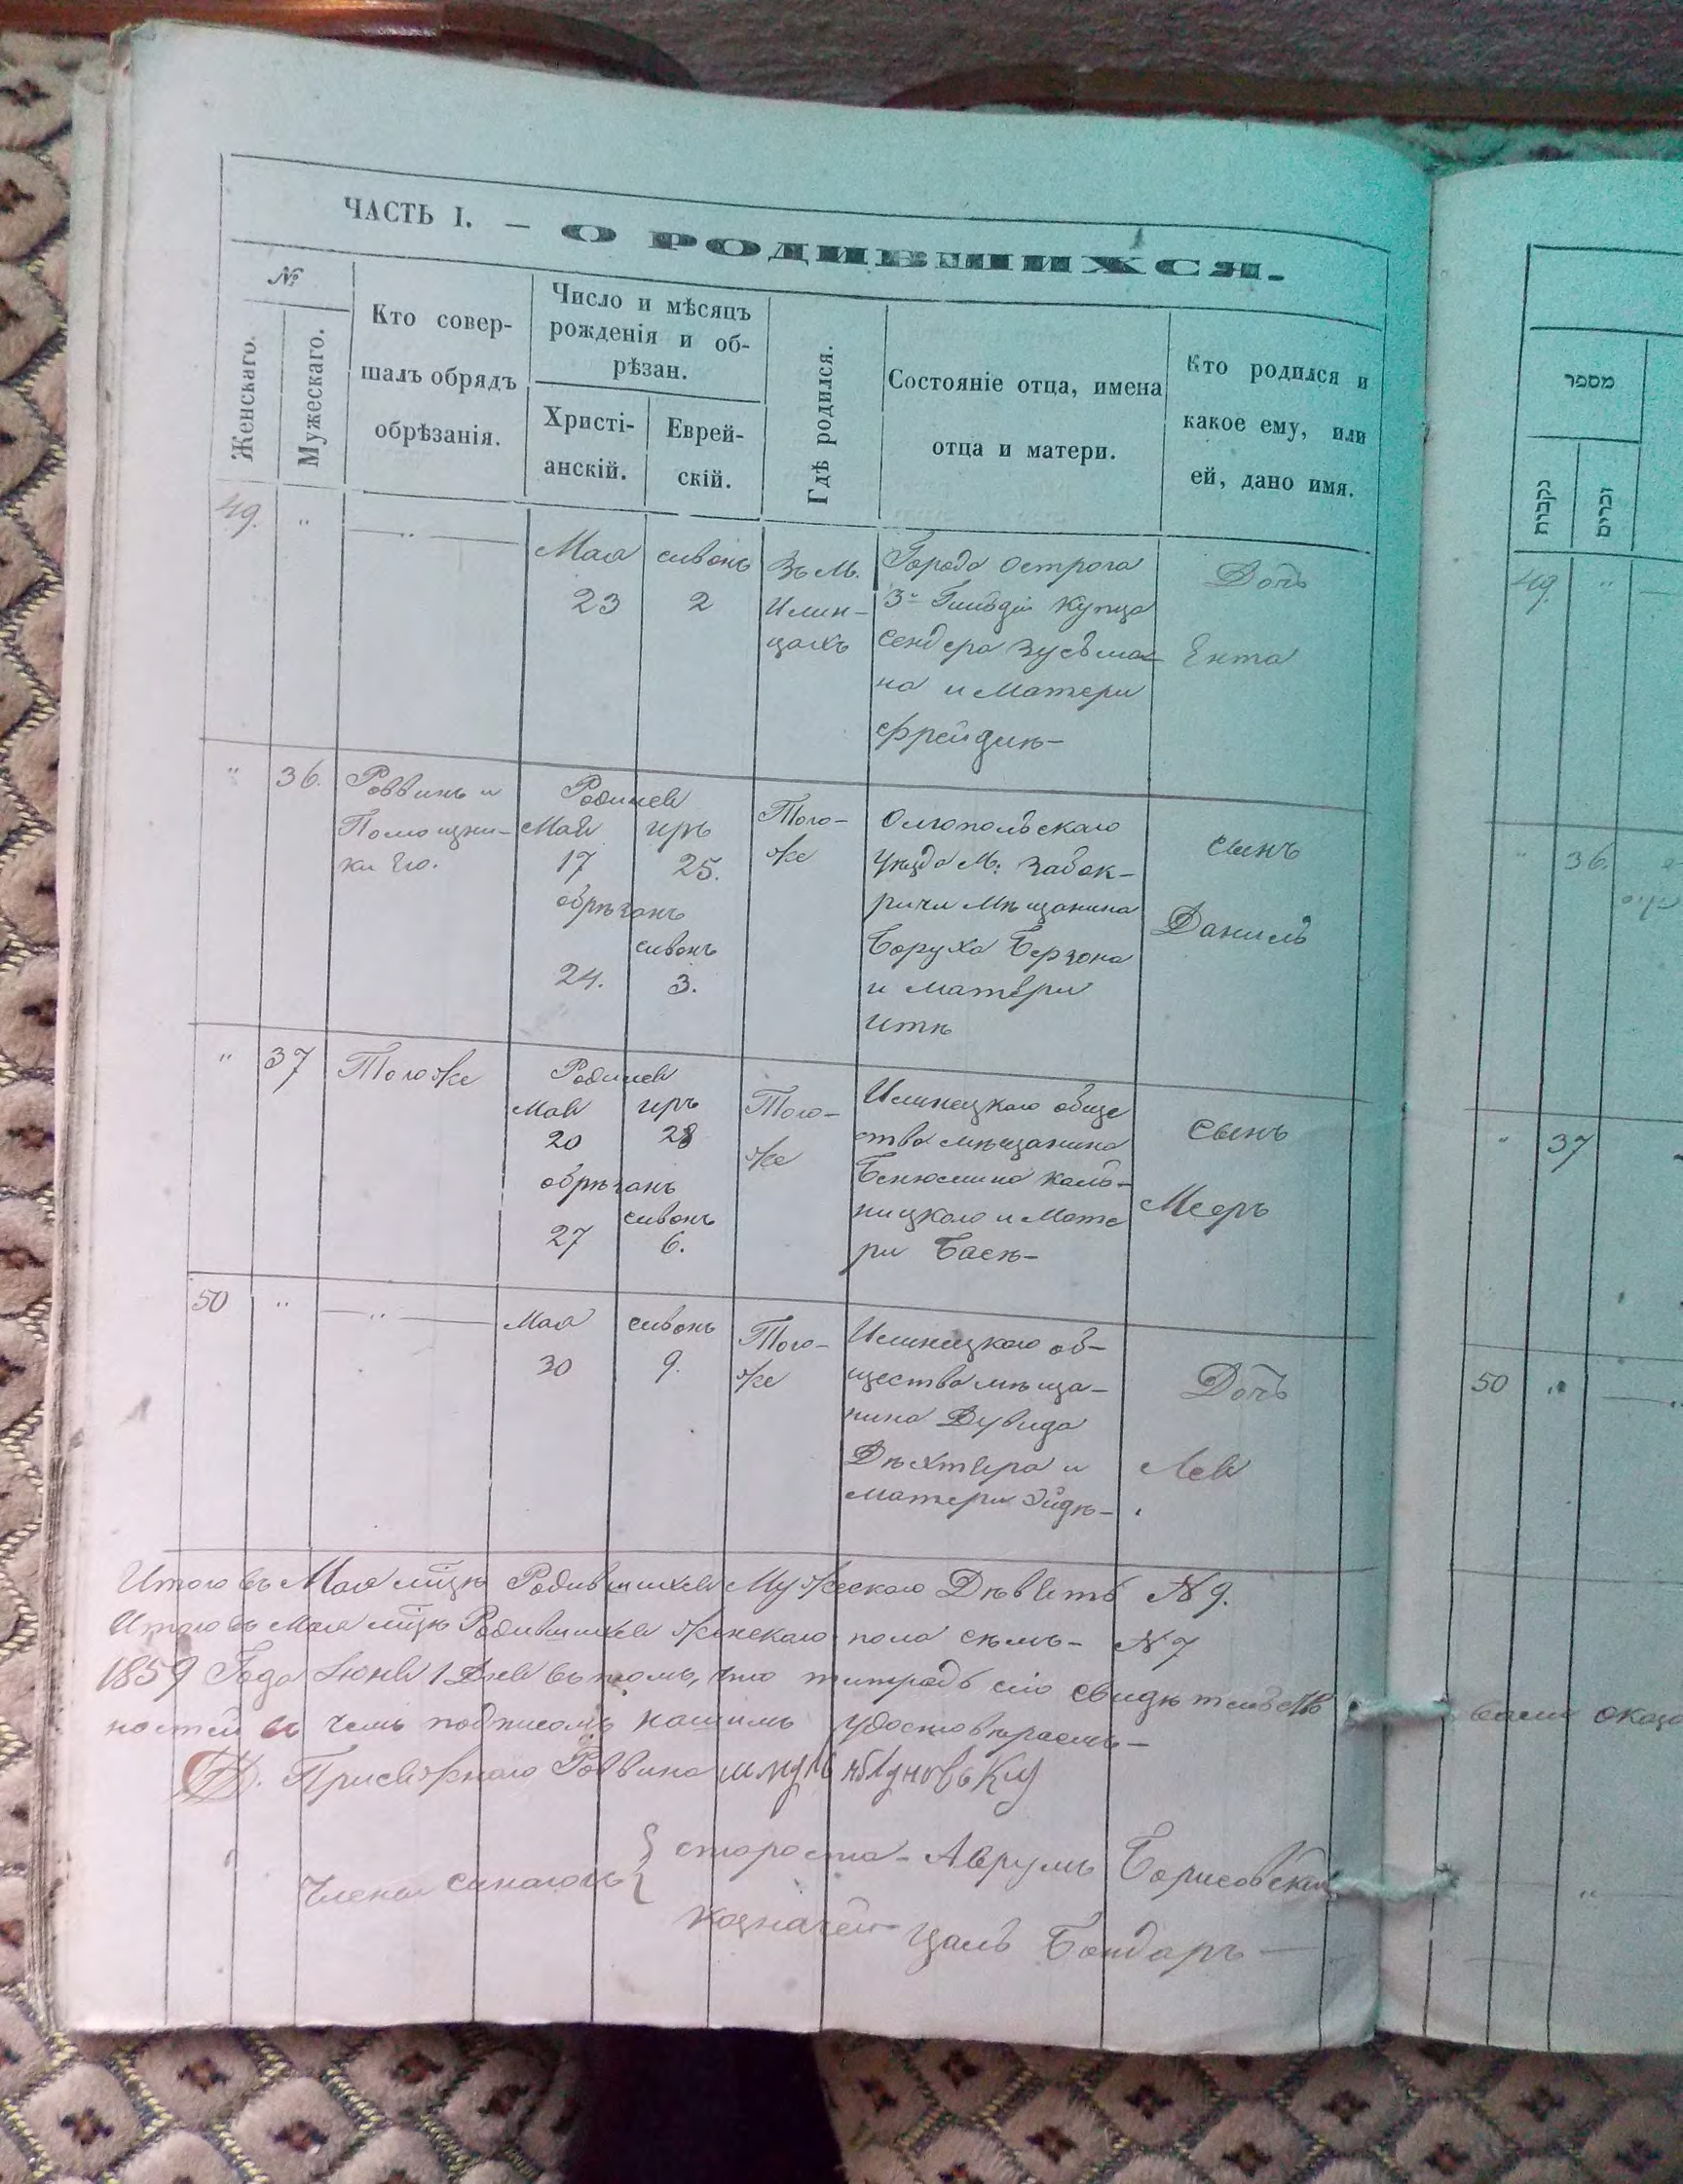 ЧАСТЬ I. — О РОДИВШИХСЯ.
№
Женскаго.
Мужескаго.
Кто совер-
шалъ обрядъ
обрѣзанія.
Число и мѣсяцъ
рожденія и об-
рѣзан.
Христі-
анскій.
Еврей-
скій.
Гдѣ родился.
Состояніе отца, имена
отца и матери.
Кто родился и
какое ему, или
ей, дано имя.
49.
"
— " —
Мая
23
сивонъ
2
Въ М.
Илин-
цахъ
Города Острога
3й Гильдіи Купца
Сендера Зусьма-
на и Матери
Фрейдинъ-
Дочь
Ента
"
36.
Раввинъ и
Помощни-
ки Его.
Родился
Мая
иръ
17
25.
обрѣзанъ
сивонъ
24.
3.
Того-
же
Олгопольскаго
Уѣзда М: Забок-
ричи Мѣщанина
Боруха Берзона
и матери
Итѣ
Сынъ
Даниль
"
37
Того же
Родился
Мая
иръ
20
28
обрѣзанъ
сивонъ
27
6.
Того-
же
Илинецкаго обще
ства мѣщанина
Бенюмина Каль-
ницкаго и Мате
ри Басѣ-
Сынъ
Мееръ
50
"
— " —
Мая
30
сивонъ
9.
Того-
же
Илинецкаго об-
щества мѣща-
нина Дувида
Дѣхтяра и
матери Эйдѣ-
Дочь
Лея
Итого въ Мая мцѣ Родившихся Мужескаго Дѣвять N 9.
Итого въ Мая мцѣ Родившихся женскаго пола семь- N 7
1859 Года Юня 1 Дня въ томъ, что тетрадь сію свидѣтельств
ностей въ чемъ подписомъ нашимъ удостовѣряемъ-
Присяжнаго Раввина
Члены синагогъ { староста - Аврумъ Борисовскій
казначей Цаль Бондаръ —
מספר
נקבות
זכרים
49.
"
"
36.
"
37
50
"
"